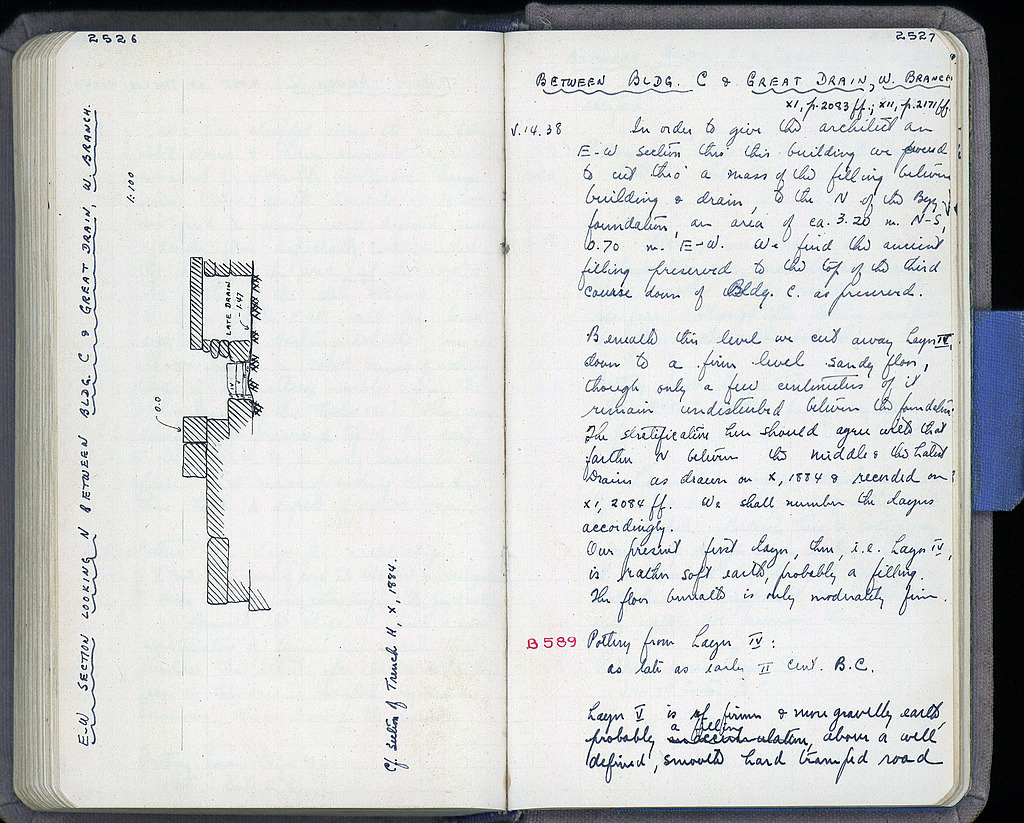 2526
E-W SECTION LOOKING N BETWEEN BLDG. C & GREAT DRAIN, W. BRANCH.
1:100
LATE DRAIN
-1.47
0.0
IV
Cf. section of Trench H, X, 1884.
2527
BETWEEN BLDG. C & GREAT DRAIN, W. BRANCH
XI, p. 2083 ff.; XII, p. 2171 ff.
V.14.38 In order to give the architect an
E-W section thro' this building we
to cut thro' a mass of the filling between
building & drain, to the N of the Byz
foundation, an area of ca. 3.20 m. N-S,
0.70 m. E-W. We find the ancient
filling preserved to the top of the third
course down of Bldg. C. as preserved.
Beneath this level we cut away Layer IV,
down to a firm level sandy floor,
though only a few centimeters of it
remain undisturbed between the foundations
The stratification here should agree with that
farther N between the Middle & the Latest
Drains as drawn on X, 1884 & recorded on
XI, 2084 ff. We shall number the layers
accordingly.
Our present first layer, then, i.e. Layer IV,
is rather soft earth, probably a filling.
The floor beneath is only moderately firm.
B 589 Pottery from Layer IV:
as late as early II cent. B.C.
Layer V is of firmer & more gravelly earth,
probably a filling, above a well
defined, smooth hard tramped road